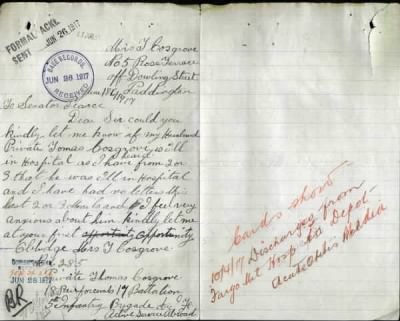 FORMAL ACKT.
SENT JUN 26 1917
BASE RECORDS
JUN 26 1917
RECEIVED
Mrs T Cosgrove
No 5 Rose Terrace
off Dowling Street
Paddington
June 18th/1917
To Senator Pearce
Dear Sir could you
kindly let me know of my Husband
Private Tomas Cosgrove will
in Hospital as I have heard from 2 or
3 that he was Ill in Hospital
and I have had no letters this
last 2 or 3 Months and I feel very
anxious about him kindly let me
at your first opportunity Opportunity
Oblidge Mrs T Cosgrove
JUN 26 1917
Private Thomas Cosgrove
18 Reinforcements 17 Battalion
5th Infantry Brigade A. I. F.
Active Service Abroad
BR
Cards show
10/4/17 Discharged from
Fargo Mil Hospital to Depot
Acute Otitis Media